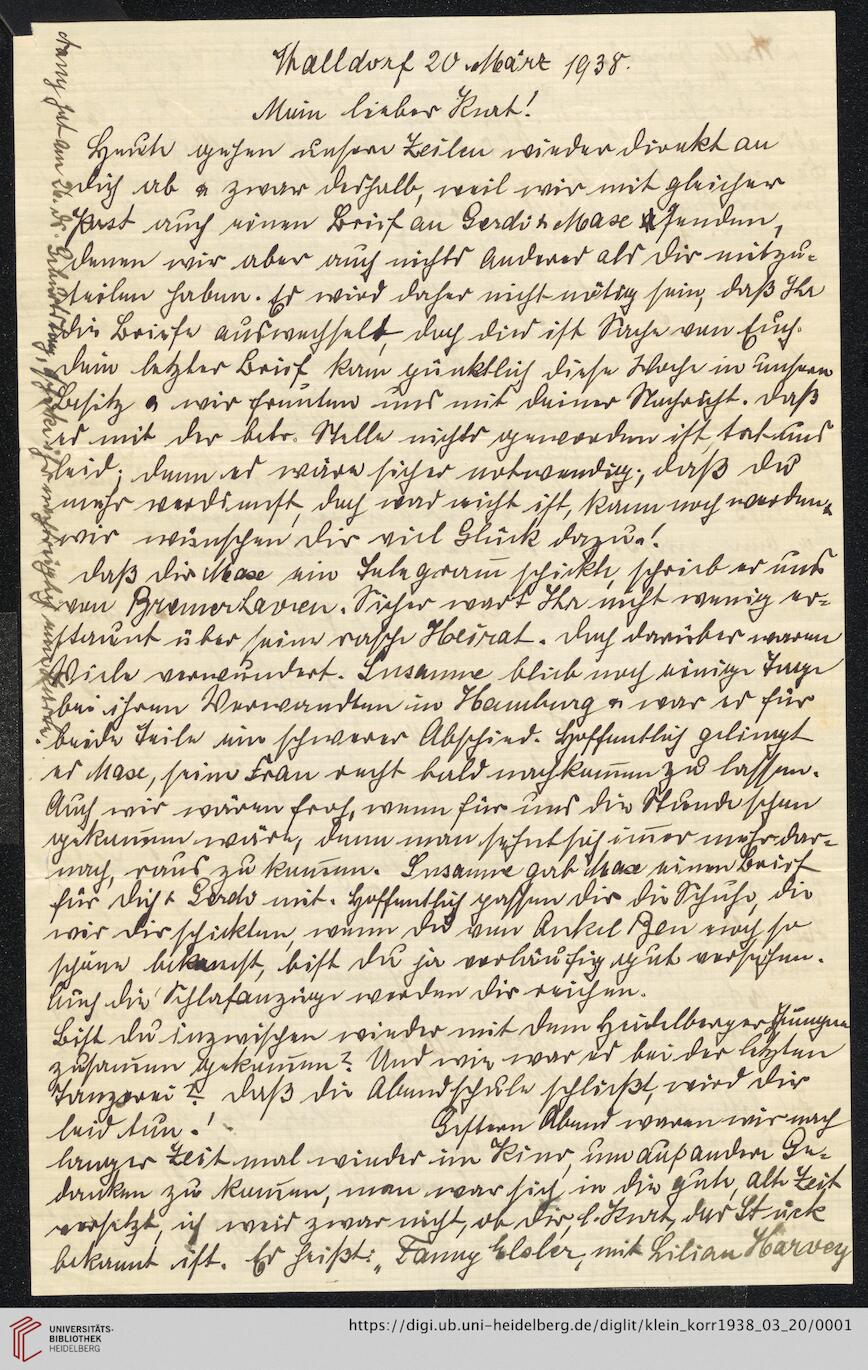 Walldorf 20. März 1938.
Mein lieber Kurt!
Heute gehen unsere Zeilen wieder direkt an
Dich ab u zwar deshalb, weil wir mit gleicher
Post auch einen Brief an Gerdi & Maxe senden,
denen wir aber auch nichts Anderes als Dir mitzu-
teilen haben. Es wird daher nicht nötig sein, daß Ihr
die Briefe auswechselt, doch dies ist Sache von Euch.
Dein letzter Brief kam pünktlich diese Woche in unsern
Besitz u wir freuten uns mit Deiner Nachricht. Daß
es mit der betr. Stelle nichts geworden ist, tat uns
leid; denn es wäre sicher notwendig, daß Du
mehr verdienst, doch was nicht ist, kann noch werden.
wir wünschen Dir viel Glück dazu!
Daß Dir Maxe ein Telegramm schickte, schrieb er uns
von Bremerhaven. Sicher wart Ihr nicht wenig er-
staunt über seine rasche Heirat. Doch darüber waren
Viele verwundert. Susanne blieb noch einige Tage
bei ihren Verwandten in Hamburg u war es für
beide Teile ein schwerer Abschied. Hoffentlich gelingt
es Maxe, seine Frau recht bald nachkommen zu lassen.
Auch wir wären froh, wenn für uns die Stunde schon
gekommen wäre, denn man sehnt sich immer mehr dar-
nach, raus zu kommen. Susanne gab Maxe einen Brief
für Dich & Gerdi mit. Hoffentlich passen Dir die Schuhe, die
wir Dir schickten, wenn Du von Onkel Ben noch so
schöne bekamst, bist Du ja vorläufig gut versehen.
Auch die Schlafanzüge werden Dir reichen.
Bist Du inzwischen wieder mit dem Heidelberger Jungen
zusammen gekommen? Und wie war es bei der letzten
Tanzerei? Daß die Abendschule schließt, wird Dir
leid tun.! Gestern Abend waren wir nach
langer Zeit mal wieder im Kino, um auf andere Ge-
danken zu kommen, man war sich in die gute, alte Zeit
versetzt, ich weis zwar nicht, ob Dir, l. Kurt, das Stück
bekannt ist. Es heißt: „Fanny Elsler, mit Lilian Harvey
Fanny hat am 26. ds. Geburtstag, schicke ihr nachträglich eine Karte.
UNIVERSITÄTS-
BIBLIOTHEK
HEIDELBERG
https://digi.ub.uni-heidelberg.de/diglit/klein_korr1938_03_20/0001